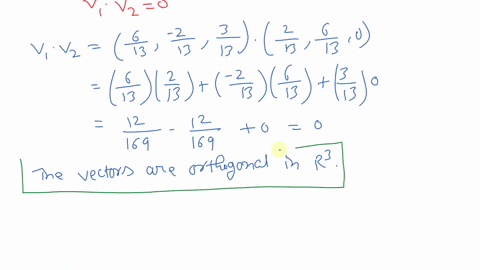 V₁·V₂=0
V₁·V₂ = (6/13, -2/13, 3/13)·(2/13, 6/13, 0)
= (6/13)(2/13)+(-2/13)(6/13)+(3/13)0
= 12/169 - 12/169 +0 = 0
The vectors are orthogonal in R³.